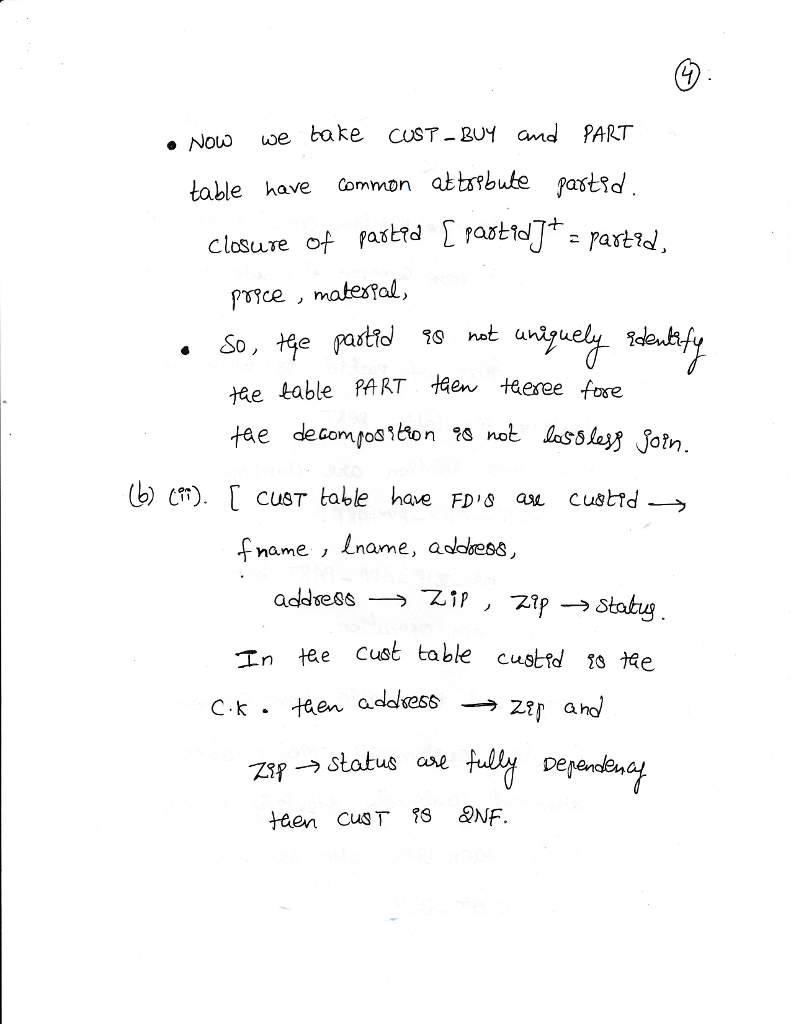 4.
• Now we take CUST-BUY and PART
table have common attribute partid.
closure of partid [partid]+ = partid,
price, material,
• So, the partid is not uniquely identify
the table PART then theree fore
the decomposition is not lossless join.
(b) (ii). [ CUST table have FD's are custid →
fname, lname, address,
address → Zip, Zip → status.
In the cust table custid is the
C.K. then address → Zip and
Zip → status are fully Dependency
then CUST is 2NF.